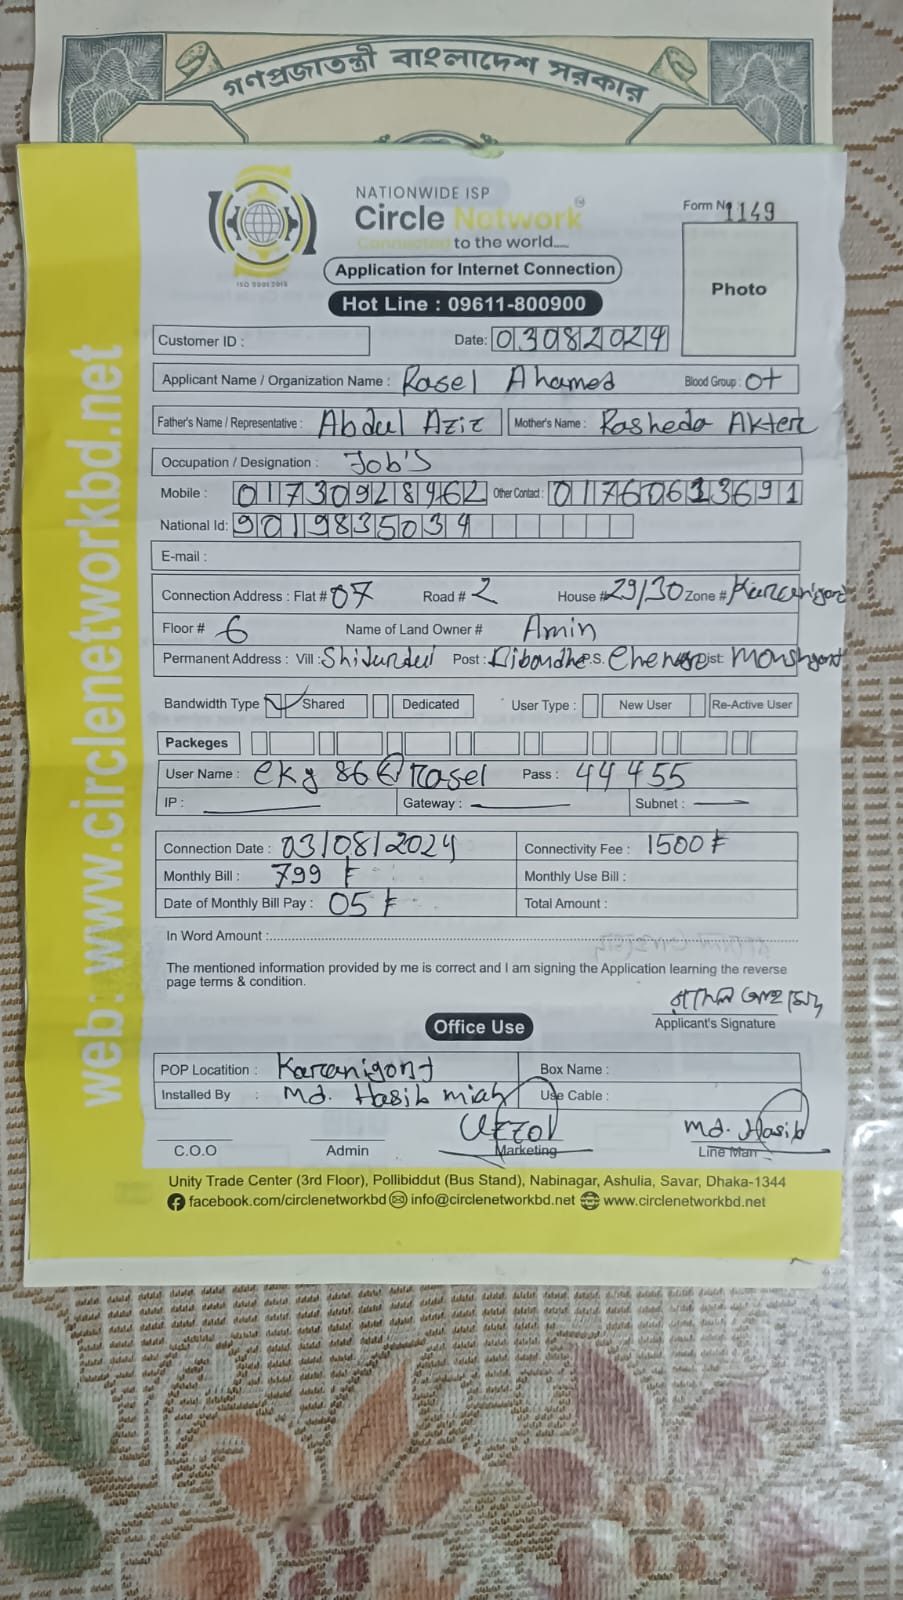 গণপ্রজাতন্ত্রী বাংলাদেশ সরকার
NATIONWIDE ISP
Circle Network
Connected to the world.....
ISO 9001:2015
Form No 1149
Photo
Application for Internet Connection
Hot Line : 09611-800900
Customer ID :
Date: 03082024
Applicant Name / Organization Name : Rasel Ahamed Blood Group : O+
Father's Name / Representative : Abdul Aziz Mother's Name : Rasheda Akter
Occupation / Designation : Job's
Mobile : 01173092 8462 Other Contact : 011760613691
National Id: 9019835034
E-mail :
Connection Address : Flat # 07 Road # 2 House # 29/30 Zone # Karanigond
Floor # 6 Name of Land Owner # Amin
Permanent Address : Vill : Post : P.S. Dist:
Bandwidth Type Shared Dedicated User Type : New User Re-Active User
Packeges
User Name : ekg 86@rasel Pass : 44455
IP : Gateway : Subnet :
Connection Date : 03/08/2024 Connectivity Fee : 1500 ৳
Monthly Bill : 799 ৳ Monthly Use Bill :
Date of Monthly Bill Pay : 05 ৳ Total Amount :
In Word Amount :
The mentioned information provided by me is correct and I am signing the Application learning the reverse
page terms & condition.
Applicant's Signature
Office Use
POP Locatition : Karanigond Box Name :
Installed By : Md. Hasib miah Use Cable :
Uzzol Md. Hasib
C.O.O Admin Marketing Line Man
Unity Trade Center (3rd Floor), Pollibiddut (Bus Stand), Nabinagar, Ashulia, Savar, Dhaka-1344
facebook.com/circlenetworkbd info@circlenetworkbd.net www.circlenetworkbd.net
web: www.circlenetworkbd.net